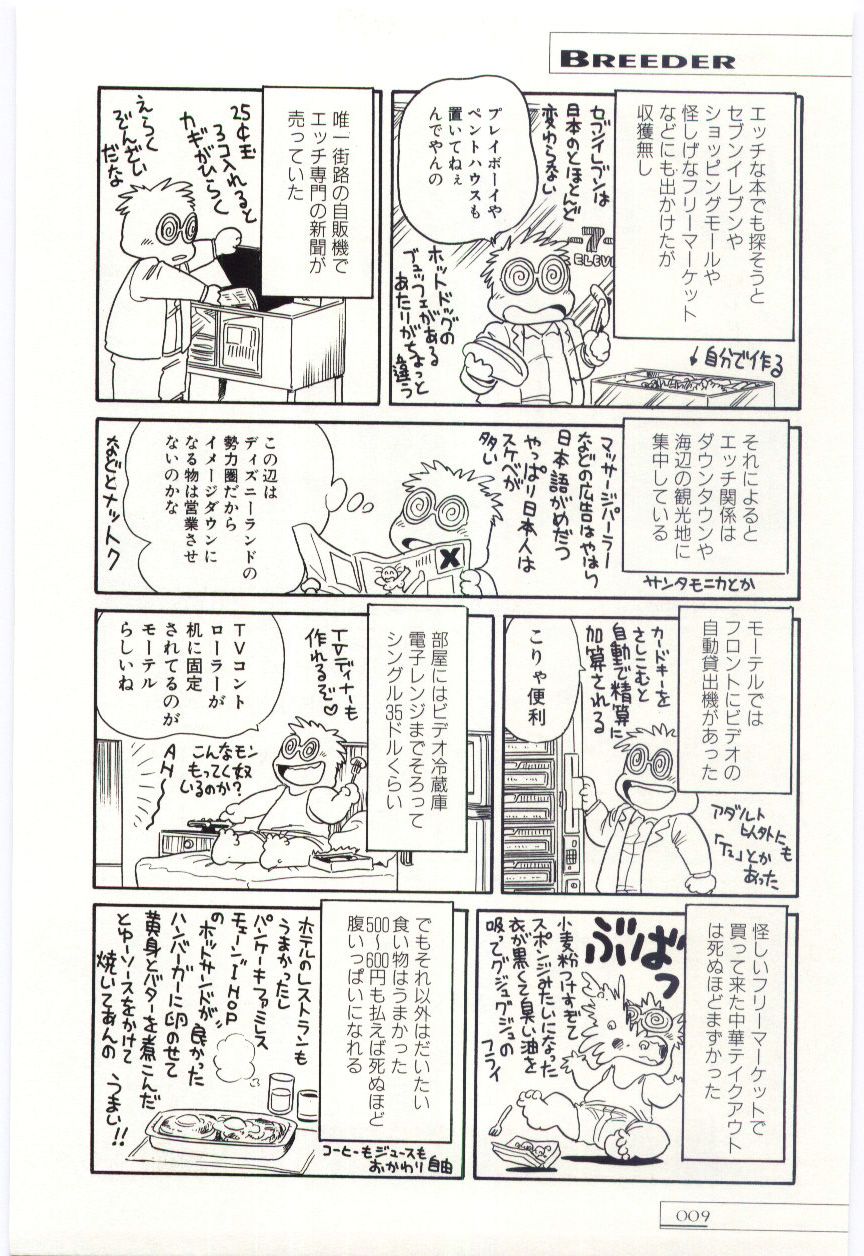 BREEDER
エッチな本でも探そうと
セブンイレブンや
ショッピングモールや
怪しげなフリーマーケット
などにも出かけたが
収獲無し
セブンイレブンは
日本のとほとんど
変わらない
プレイボーイや
ペントハウスも
置いてねぇ
んでやんの
7
ELEVE
ホットドッグの
ブュッフェがある
あたりがちょっと
違う
↓自分で作る
唯一街路の自販機で
エッチ専門の新聞が
売っていた
25¢玉
3コ入れると
カギがひらく
えらく
ぞんざい
だな
それによると
エッチ関係は
ダウンタウンや
海辺の観光地に
集中している
サンタモニカとか
マッサージパーラー
などの広告はやはり
日本語がめだつ
やっぱり日本人は
スケベが
多い
X
この辺は
ディズニーランドの
勢力圏だから
イメージダウンに
なる物は営業させ
ないのかな
などとナットク
モーテルでは
フロントにビデオの
自動貸出機があった
カードキーを
さしこむと
自動で精算に
加算される
こりゃ便利
アダルト
以外にも
「T2」とか
あった
部屋にはビデオ冷蔵庫
電子レンジまでそろって
シングル35ドルくらい
TVディナーも
作れるぞ♡
TVコント
ローラーが
机に固定
されてるのが
モーテル
らしいね
こんなモン
もってく奴
いるのか?
AH
怪しいフリーマーケットで
買って来た中華テイクアウト
は死ぬほどまずかった
ぶばっ
小麦粉つけすぎて
スポンジみたいになった
衣が黒くて臭い油を
吸ってグジュグジュの
フライ
でもそれ以外はだいたい
食い物はうまかった
500〜600円も払えば死ぬほど
腹いっぱいになれる
ホテルのレストランも
うまかったし
パンケーキファミレス
チェーンIHOP
のホットサンドが良かった
ハンバーガーに卵のせて
黄身とバターを煮こんだ
とゆーソースをかけて
焼いてあんの うまい!!
コーヒーもジュースも
おかわり自由
009